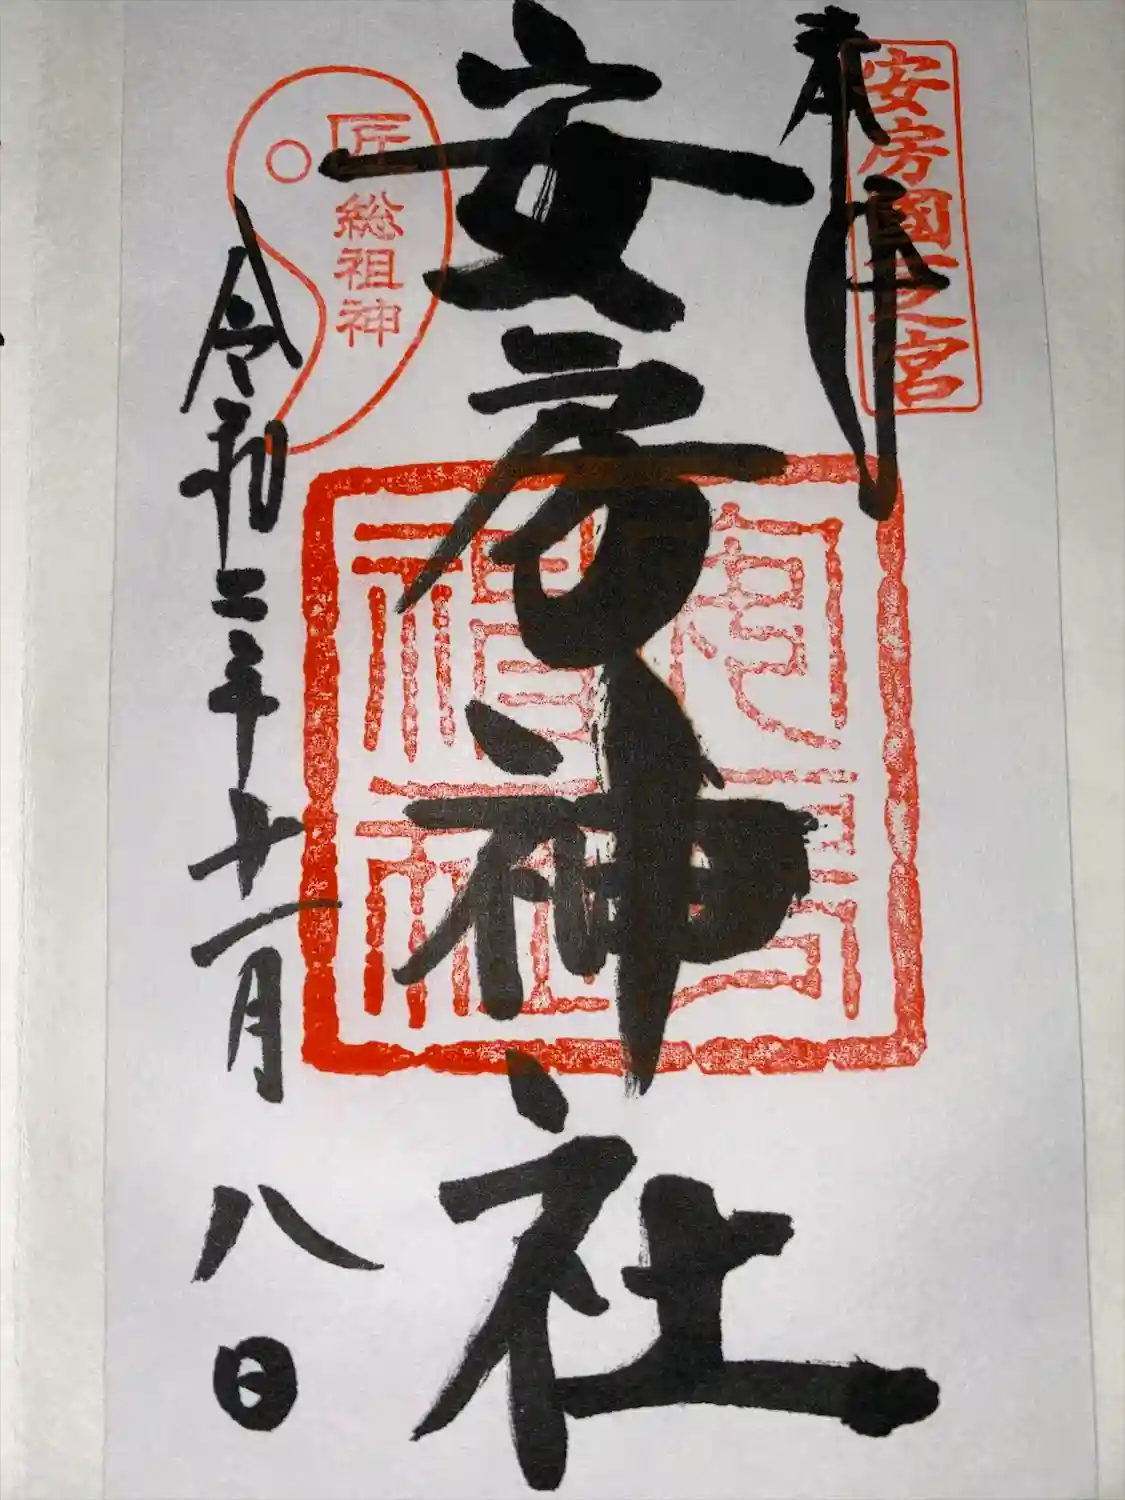 奉拝
安房國一之宮
安房神社
安房神社
匠総祖神
令和二年十一月八日